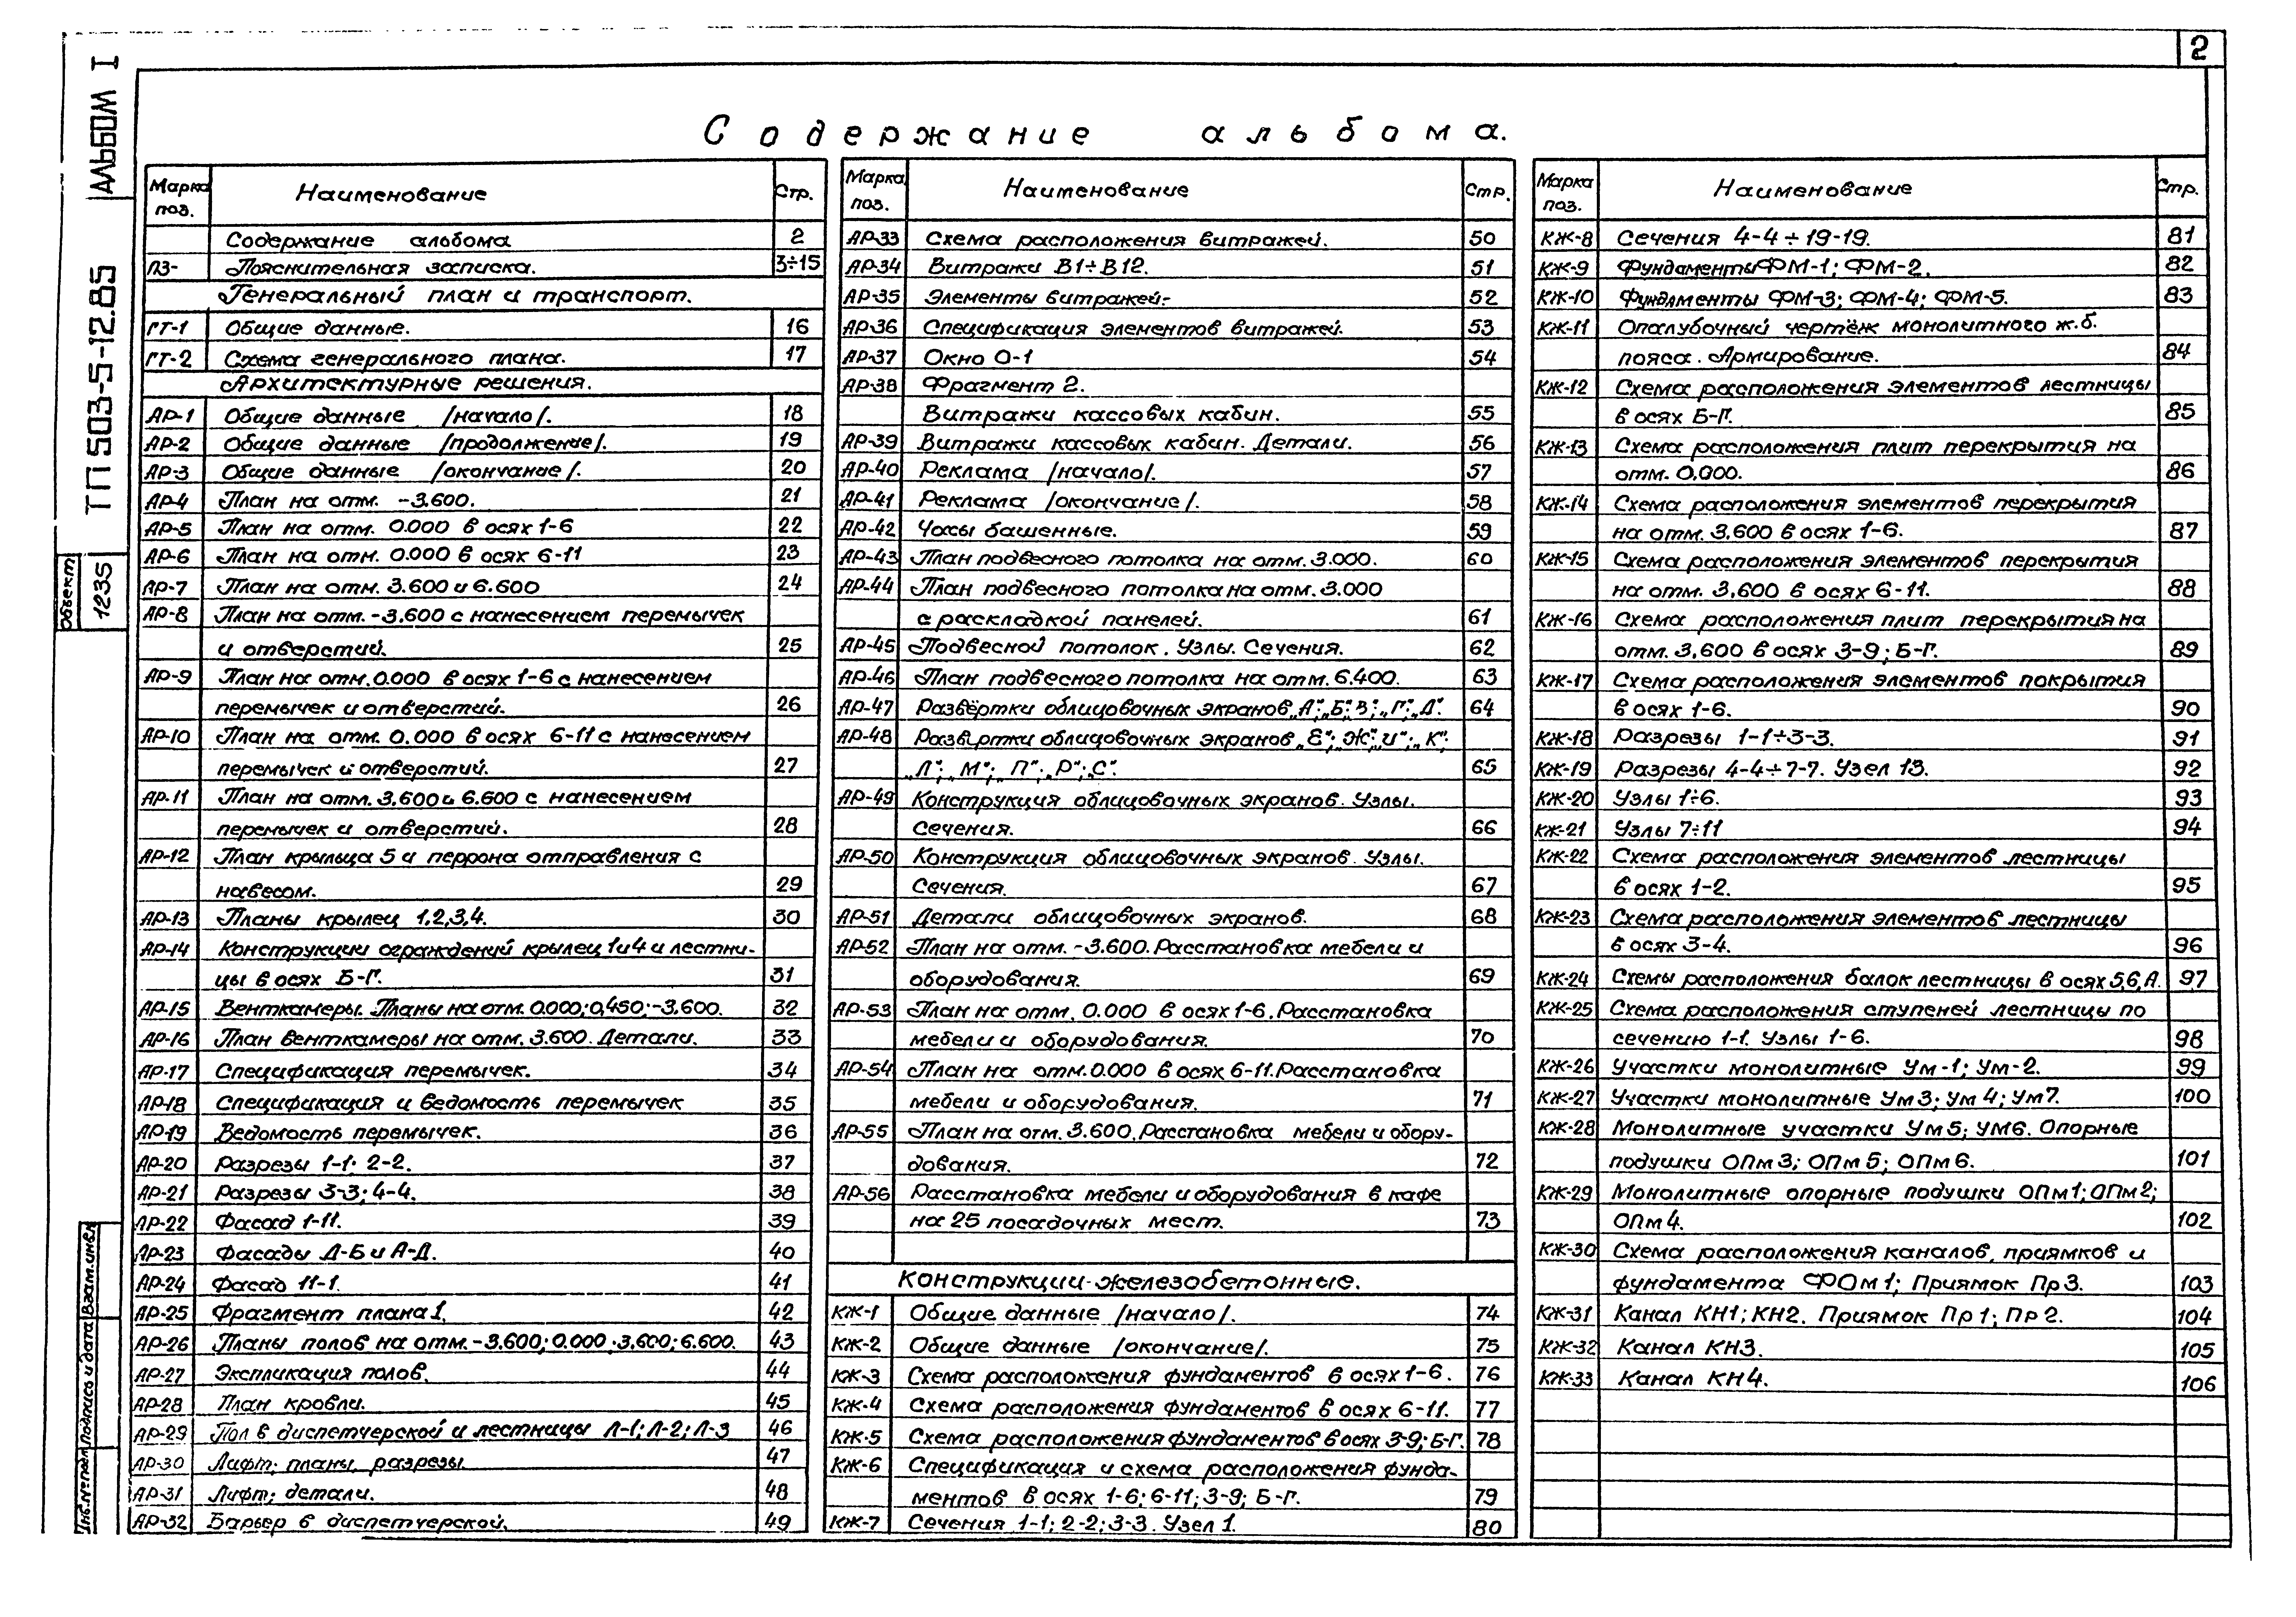 2
АЛЬБОМ I
ТП 503-5-12.85
Объект
1235
Взам.инв.
Подпись и дата
Инв.№ подл
Содержание альбома.
Марка поз. Наименование Стр.
Содержание альбома 2
ПЗ- Пояснительная записка. 3÷15
Генеральный план и транспорт.
ГТ-1 Общие данные. 16
ГТ-2 Схема генерального плана. 17
Архитектурные решения.
АР-1 Общие данные /начало/. 18
АР-2 Общие данные /продолжение/. 19
АР-3 Общие данные /окончание/. 20
АР-4 План на отм. -3.600. 21
АР-5 План на отм. 0.000 в осях 1-6 22
АР-6 План на отм. 0.000 в осях 6-11 23
АР-7 План на отм. 3.600 и 6.600 24
АР-8 План на отм. -3.600 с нанесением перемычек
и отверстий. 25
АР-9 План на отм. 0.000 в осях 1-6 с нанесением
перемычек и отверстий. 26
АР-10 План на отм. 0.000 в осях 6-11 с нанесением
перемычек и отверстий. 27
АР-11 План на отм. 3.600 и 6.600 с нанесением
перемычек и отверстий. 28
АР-12 План крыльца 5 и перрона отправления с
навесом. 29
АР-13 Планы крылец 1,2,3,4. 30
АР-14 Конструкции ограждений крылец 1и4 и лестни-
цы в осях Б-Г. 31
АР-15 Венткамеры. Планы на отм. 0.000; 0,450; -3.600. 32
АР-16 План венткамеры на отм. 3.600. Детали. 33
АР-17 Спецификация перемычек. 34
АР-18 Спецификация и ведомость перемычек 35
АР-19 Ведомость перемычек. 36
АР-20 Разрезы 1-1; 2-2. 37
АР-21 Разрезы 3-3; 4-4. 38
АР-22 Фасад 1-11. 39
АР-23 Фасады Д-Б и А-Д. 40
АР-24 Фасад 11-1. 41
АР-25 Фрагмент плана 1. 42
АР-26 Планы полов на отм. -3.600; 0.000; 3.600; 6.600. 43
АР-27 Экспликация полов. 44
АР-28 План кровли. 45
АР-29 Пол в диспетчерской и лестницы Л-1; Л-2; Л-3 46
АР-30 Лифт; планы, разрезы. 47
АР-31 Лифт; детали. 48
АР-32 Барьер в диспетчерской. 49
Марка поз. Наименование Стр.
АР-33 Схема расположения витражей. 50
АР-34 Витражи В1÷В12. 51
АР-35 Элементы витражей. 52
АР-36 Спецификация элементов витражей. 53
АР-37 Окно О-1 54
АР-38 Фрагмент 2.
Витражи кассовых кабин. 55
АР-39 Витражи кассовых кабин. Детали. 56
АР-40 Реклама /начало/. 57
АР-41 Реклама /окончание/. 58
АР-42 Часы башенные. 59
АР-43 План подвесного потолка на отм. 3.000. 60
АР-44 План подвесного потолка на отм. 3.000
с раскладкой панелей. 61
АР-45 Подвесной потолок. Узлы. Сечения. 62
АР-46 План подвесного потолка на отм. 6.400. 63
АР-47 Развёртки облицовочных экранов „А“; „Б“; В“; „Г“; „Д“. 64
АР-48 Развёртки облицовочных экранов „Е“; „Ж“; „И“; „К“;
„Л“; „М“; „П“; „Р“; „С“. 65
АР-49 Конструкция облицовочных экранов. Узлы.
Сечения. 66
АР-50 Конструкция облицовочных экранов. Узлы.
Сечения. 67
АР-51 Детали облицовочных экранов. 68
АР-52 План на отм. -3.600. Расстановка мебели и
оборудования. 69
АР-53 План на отм. 0.000 в осях 1-6. Расстановка
мебели и оборудования. 70
АР-54 План на отм. 0.000 в осях 6-11. Расстановка
мебели и оборудования. 71
АР-55 План на отм. 3.600. Расстановка мебели и обору-
дования. 72
АР-56 Расстановка мебели и оборудования в кафе
на 25 посадочных мест. 73
Конструкции железобетонные.
КЖ-1 Общие данные /начало/. 74
КЖ-2 Общие данные /окончание/. 75
КЖ-3 Схема расположения фундаментов в осях 1-6. 76
КЖ-4 Схема расположения фундаментов в осях 6-11. 77
КЖ-5 Схема расположения фундаментов в осях 3-9; Б-Г. 78
КЖ-6 Спецификация и схема расположения фунда-
ментов в осях 1-6; 6-11; 3-9; Б-Г. 79
КЖ-7 Сечения 1-1; 2-2; 3-3. Узел 1. 80
Марка поз. Наименование Стр.
КЖ-8 Сечения 4-4÷19-19. 81
КЖ-9 Фундаменты ФМ-1; ФМ-2. 82
КЖ-10 Фундаменты ФМ-3; ФМ-4; ФМ-5. 83
КЖ-11 Опалубочный чертёж монолитного ж.б.
пояса. Армирование. 84
КЖ-12 Схема расположения элементов лестницы
в осях Б-Г. 85
КЖ-13 Схема расположения плит перекрытия на
отм. 0.000. 86
КЖ-14 Схема расположения элементов перекрытия
на отм. 3.600 в осях 1-6. 87
КЖ-15 Схема расположения элементов перекрытия
на отм. 3,600 в осях 6-11. 88
КЖ-16 Схема расположения плит перекрытия на
отм. 3.600 в осях 3-9; Б-Г. 89
КЖ-17 Схема расположения элементов покрытия
в осях 1-6. 90
КЖ-18 Разрезы 1-1÷3-3. 91
КЖ-19 Разрезы 4-4÷7-7. Узел 13. 92
КЖ-20 Узлы 1÷6. 93
КЖ-21 Узлы 7÷11 94
КЖ-22 Схема расположения элементов лестницы
в осях 1-2. 95
КЖ-23 Схема расположения элементов лестницы
в осях 3-4. 96
КЖ-24 Схемы расположения балок лестницы в осях 5,6,А. 97
КЖ-25 Схема расположения ступеней лестницы по
сечению 1-1. Узлы 1-6. 98
КЖ-26 Участки монолитные Ум-1; Ум-2. 99
КЖ-27 Участки монолитные Ум3; Ум4; Ум7. 100
КЖ-28 Монолитные участки Ум5; УМ6. Опорные
подушки ОПм3; ОПм5; ОПм6. 101
КЖ-29 Монолитные опорные подушки ОПм1; ОПм2;
ОПм4. 102
КЖ-30 Схема расположения каналов, приямков и
фундамента ФОм1; Приямок Пр3. 103
КЖ-31 Канал КН1; КН2. Приямок Пр1; Пр2. 104
КЖ-32 Канал КН3. 105
КЖ-33 Канал КН4. 106